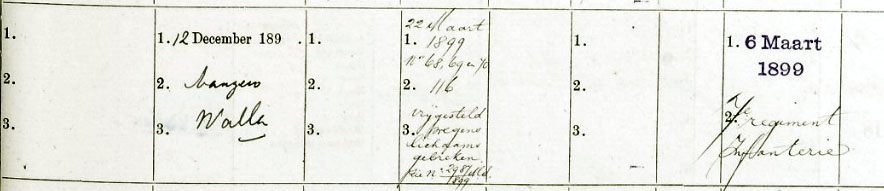 1.
2.
3.
1. 12 December 189 .
2.
3. Walla
1.
2.
3.
22 Maart
1. 1899
No 68, 69 en 70
2. 116
vrijgesteld
3. wegens
lichaams
gebreken.
Zie No
1899
1.
2.
3.
1. 6 Maart
1899
2. 7e regiment
Infanterie